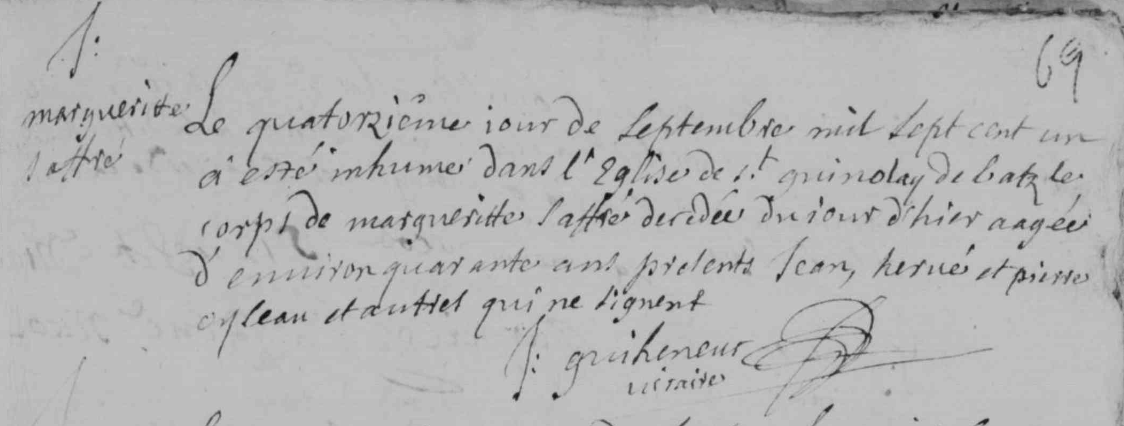 S:
69
margueritte
saffré
Le quatorziême iour de septembre mil sept cent un
a esté inhumé dans l'Eglise de st guinolay de batz le
corps de margueritte saffré decedée du iour d'hier aagée
d'enuiron quarante ans presents Jean, herué et pierre
oyseau et autres qui ne signent
J: guiheneuc
uicaire